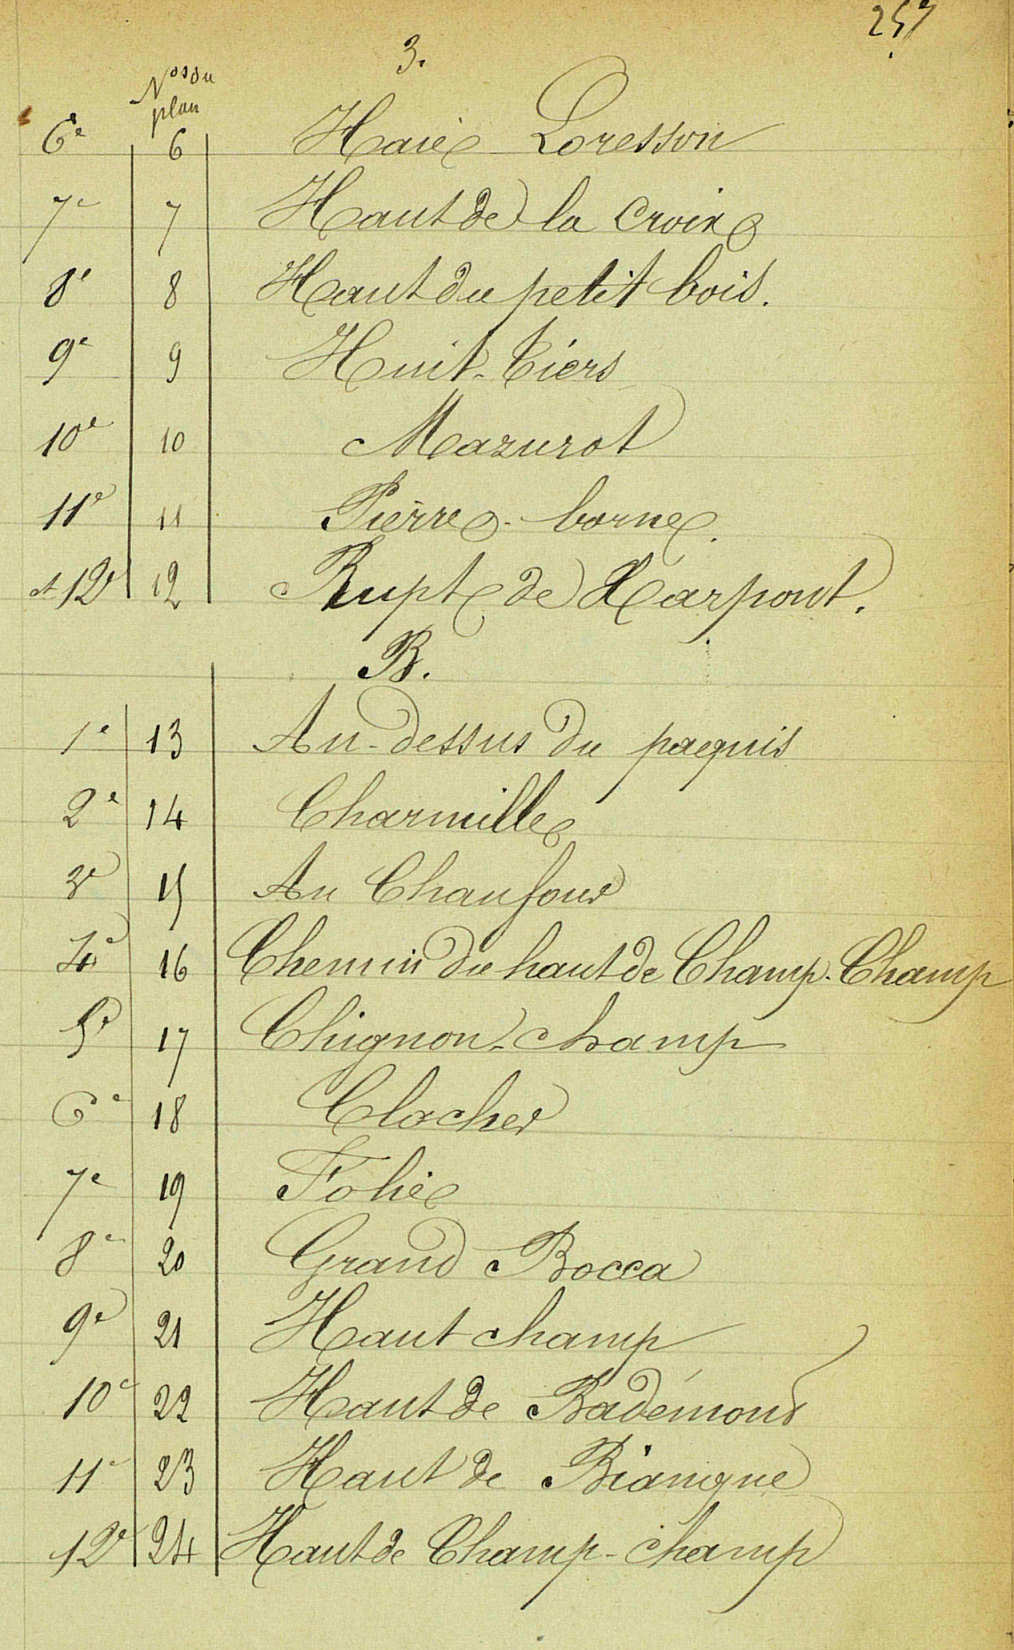 257
3.
Nos du
plan
6e 6 Haie Loresson
7e 7 Haut de la Croix
8e 8 Haut du petit bois.
9e 9 Huit-tiers
10e 10 Mazurot
11e 11 Pierre-borne.
et 12e 12 Rupt de Harpont.
B.
1e 13 Au-dessus du paquis
2e 14 Charmille
3e 15 Au Chaufour
4e 16 Chemin du haut de Champ-Champ
5e 17 Chignon-champ
6e 18 Clocher
7e 19 Folie
8e 20 Grand Bocca
9e 21 Haut champ
10e 22 Haut de Badémont
11e 23 Haut de Biangne
12e 24 Haut de Champ-champ